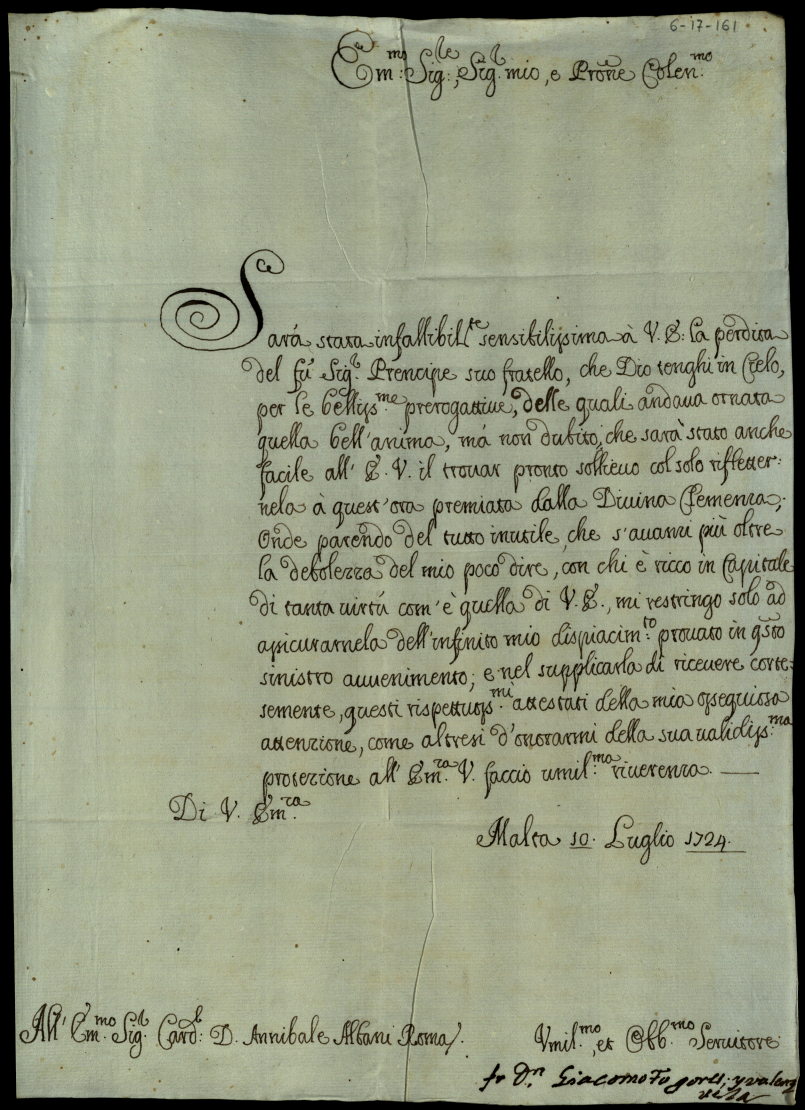 6-17-161
Em:mo Sig:re, Sig:r mio, e Prone Colen:mo
Sará stata infallibil:te sensibilissima à V. E: la perdita
del fù Sig:r Prencipe suo fratello, che Dio tenghi in Cielo,
per le bellis:me prerogattiue, delle quali andaua ornata
quella bell'anima, má non dubito, che sarà stato anche
facile all' E. V. il trouar pronto solliéuo col solo rifletter:
nela à quest'ora premiata dalla Divina Clemenza;
Onde parendo del tutto inutile, che s'auanzi più oltre
la debolezza del mio poco dire, con chi è ricco in Capitale
di tanta uirtú com'è quella di V. E., mi restringo solo ad
assicurarnela dell'infinito mio dispiacim:to prouato in qsto
sinistro auuenimento; e nel supplicarla di riceuere corte:
semente, questi rispettuos:mi attestati della mia ossequiosa
attenzione, come altresi d'onorarmi della sua ualidis:ma
protezione all' Em:za V. faccio umil:ma riuerenza.
Di V. Em:za
Malta 10. Luglio 1724.
All' Em:mo Sig:r Card:l D. Annibale Albani Roma.
Vmil:mo, et Obb:mo Seruitore
fr Dn Giacomo Togores, y valenz
uela